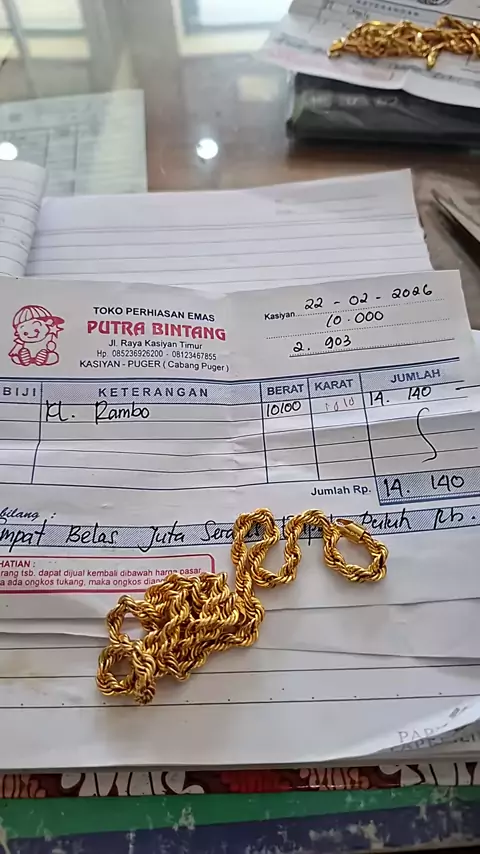 KETERANGAN
TOKO PERHIASAN EMAS
PUTRA BINTANG
Jl. Raya Kasiyan Timur
Hp. 085236926200 - 08123467855
KASIYAN - PUGER ( Cabang Puger )
Kasiyan 22 - 02 - 2026
10.000
2. 903
BIJI KETERANGAN BERAT KARAT JUMLAH
Kl. Rambo 10100 14. 140
Jumlah Rp. 14. 140
bilang :
mpat Belas Juta Puluh Rb.
HATIAN :
rang tsb. dapat dijual kembali dibawah harga pasar
a ada ongkos tukang, maka ongkos